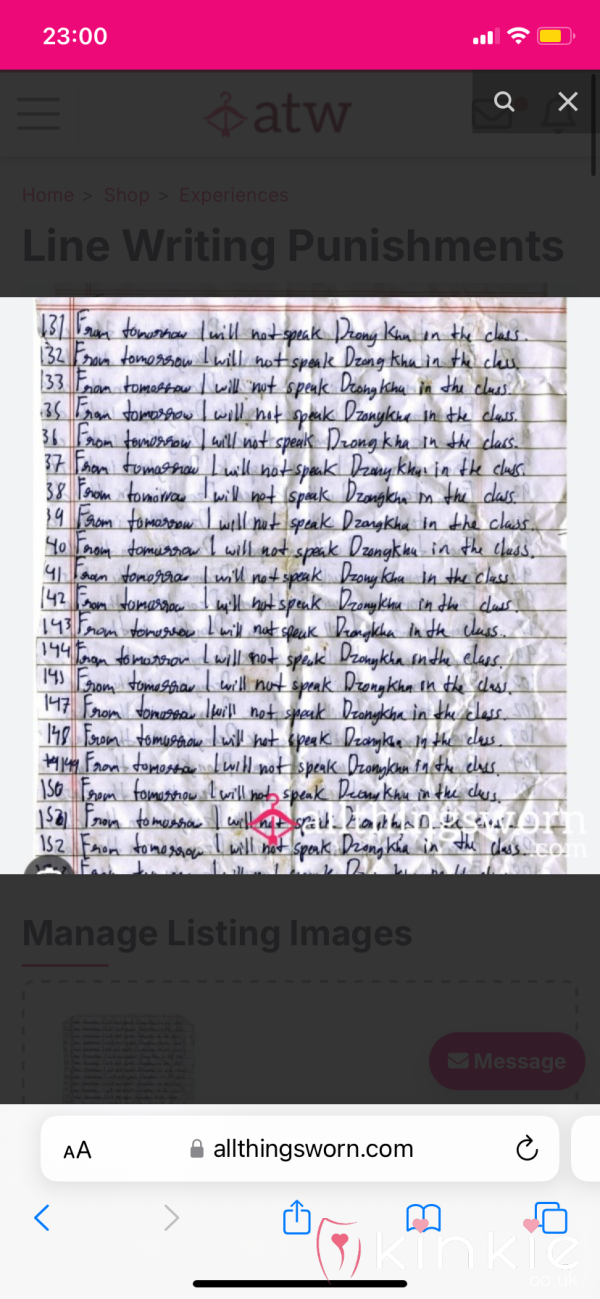 23:00
atw
Home > Shop > Experiences
Line Writing Punishments
131 From tomorrow I will not speak Dzong Kha in the class.
132 From tomorrow I will not speak Dzong kha in the class.
133 From tomorrow I will not speak Dzongkha in the class.
35 From tomorrow I will not speak Dzongkha in the class.
36 From tomorrow I will not speak Dzong kha in the class.
37 From tomorrow I will not speak Dzong kha in the class.
38 From tomorrow I will not speak Dzongkha in the class
39 From tomorrow I will not speak Dzongkha in the class.
40 From tomorrow I will not speak Dzongkha in the class.
41 From tomorrow I will not speak Dzongkha in the class
142 From tomorrow I will not speak Dzongkha in the class.
143 From tomorrow I will not speak Dzongkha in the class.
144 From tomorrow I will not speak Dzongkha in the class.
145 From tomorrow I will not speak Dzongkha in the class.
147 From tomorrow I will not speak Dzongkha in the class.
148 From tomorrow I will not speak Dzongkha in the class.
149 From tomorrow I will not speak Dzongkha in the class.
150 From tomorrow I will not speak Dzongkha in the class.
151 From tomorrow I will not speak Dzongkha in the class.
allthingsworn
152 From tomorrow I will not speak Dzongkha in the class.
.com
Manage Listing Images
Message
AA allthingsworn.com
kinkie
.co.uk